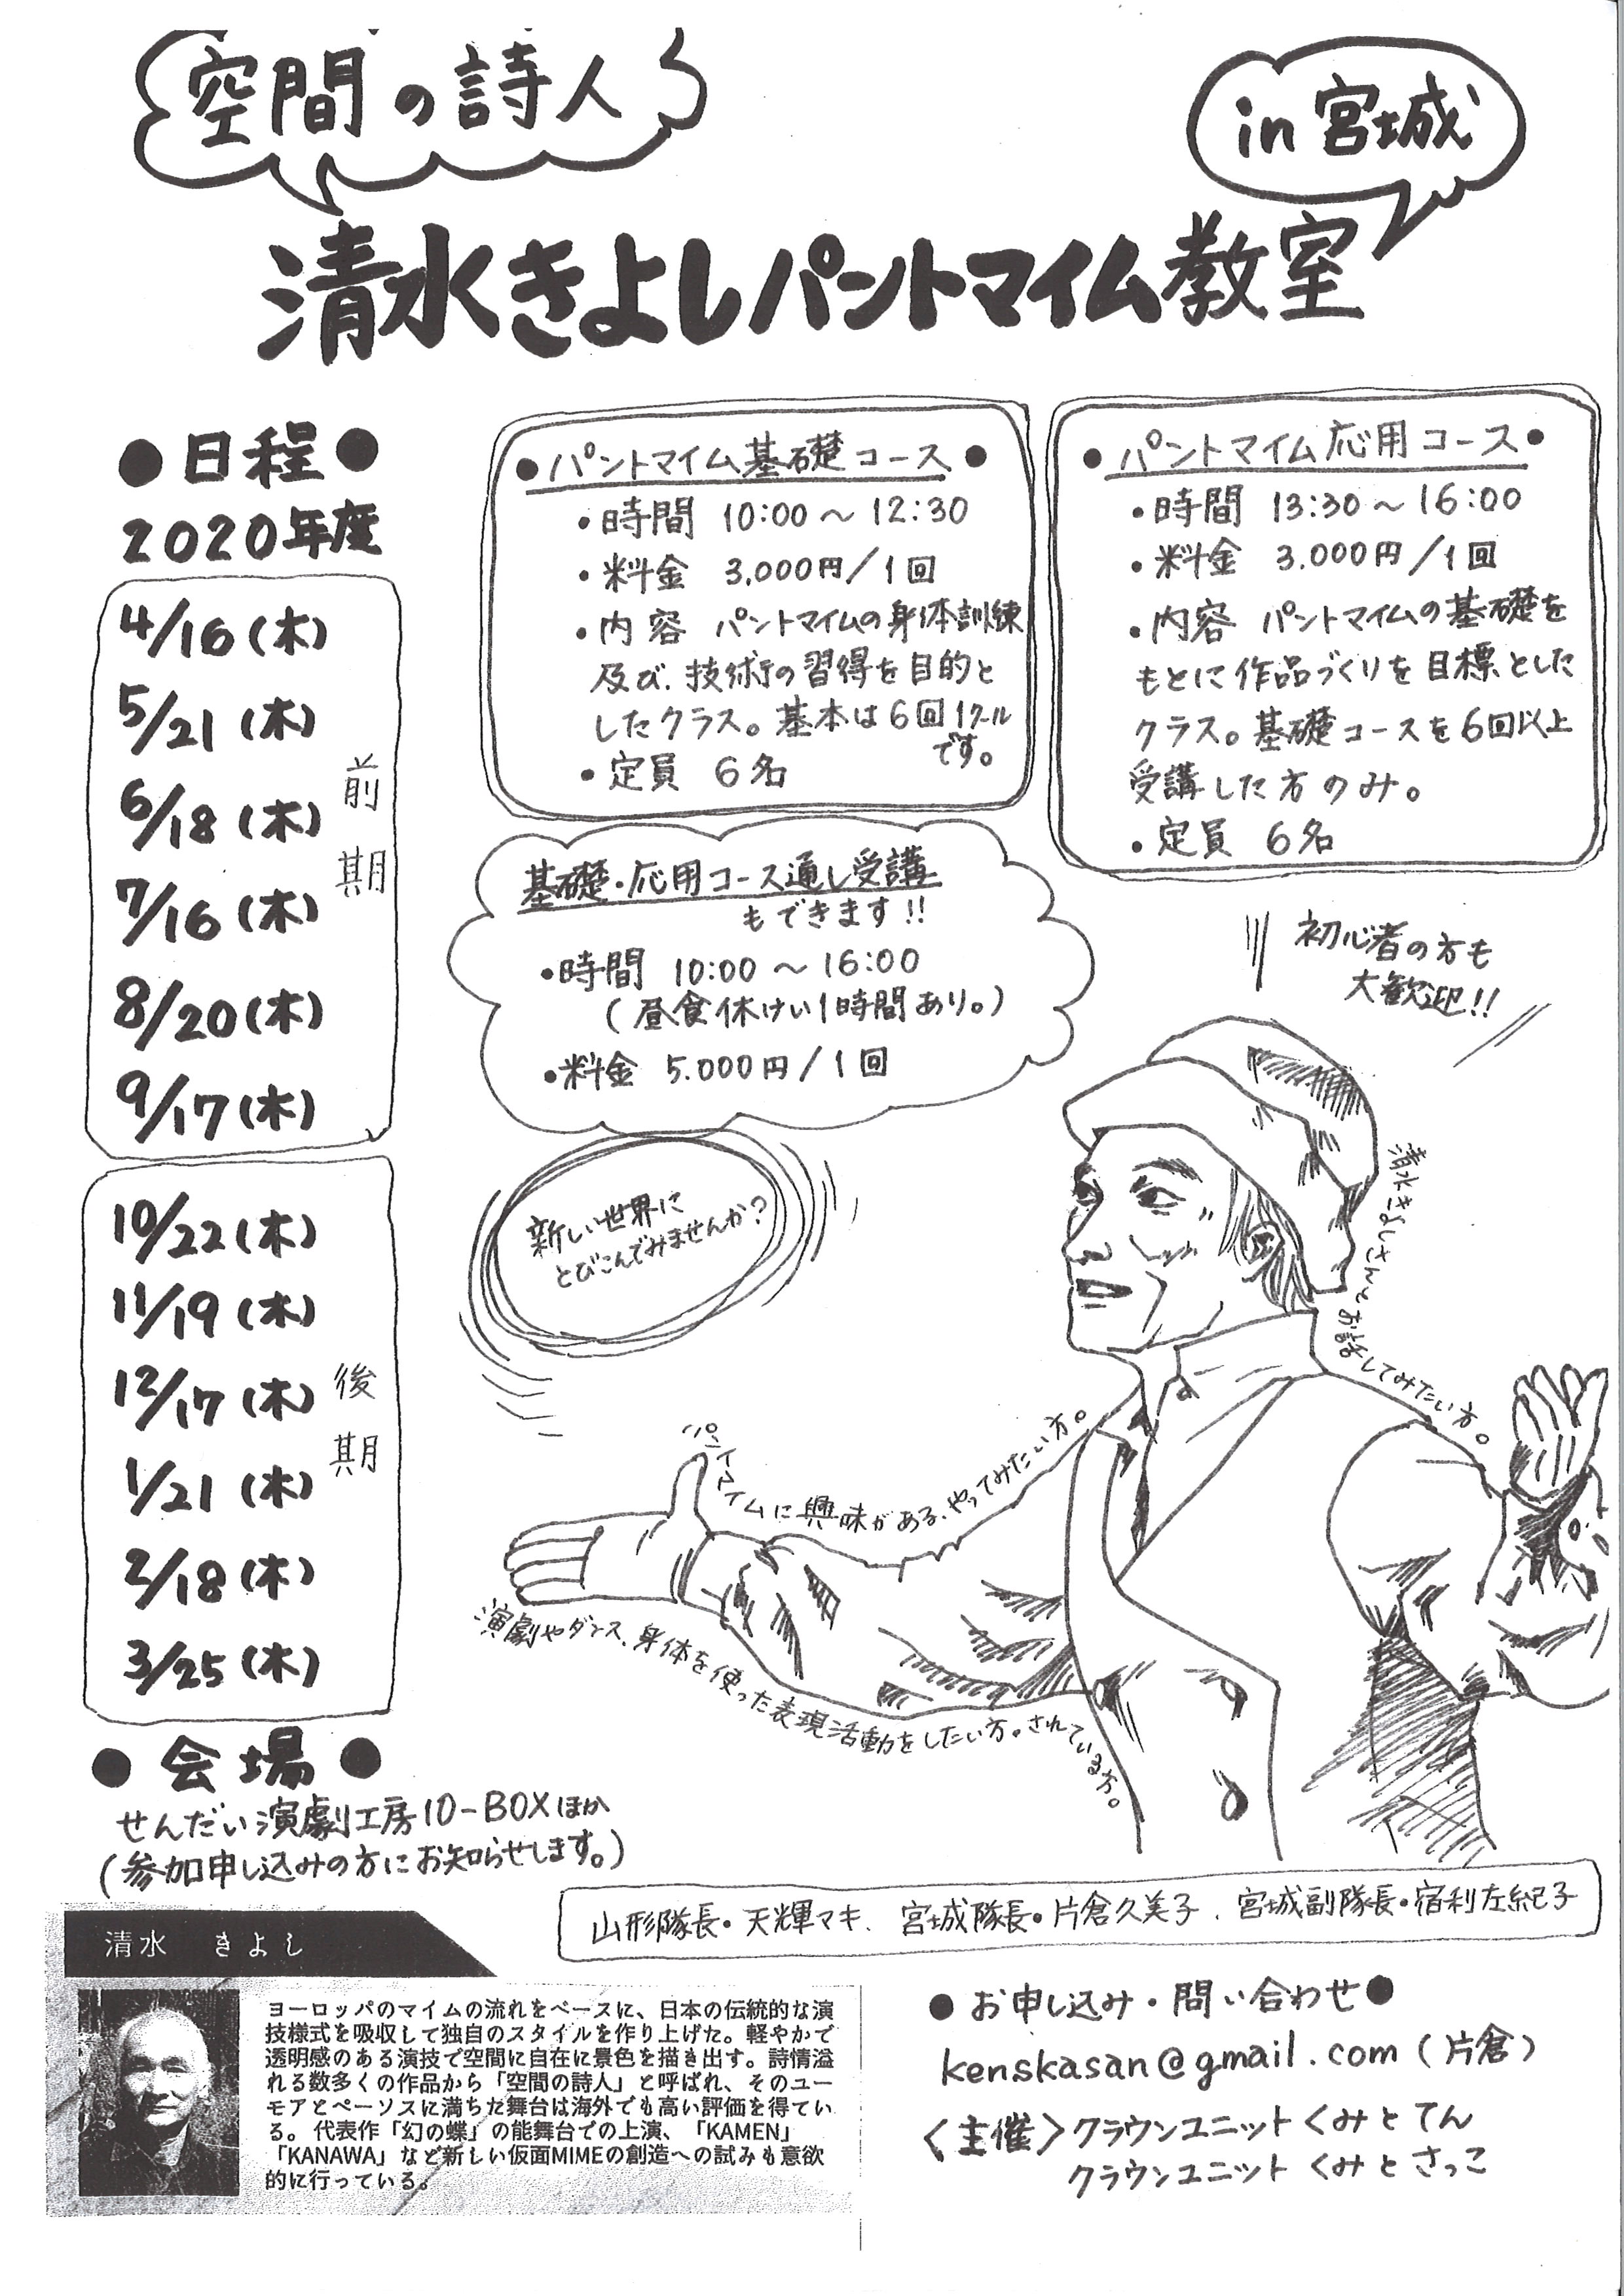 空間の詩人
in宮城
清水きよしパントマイム教室
●日程●
2020年度
4/16(木)
5/21(木)
6/18(木)
7/16(木)
8/20(木)
9/17(木)
前期
10/22(木)
11/19(木)
12/17(木)
1/21(木)
2/18(木)
3/25(木)
後期
●会場●
せんだい演劇工房10-BOXほか
(参加申し込みの方にお知らせします。)
●パントマイム基礎コース●
・時間 10:00〜12:30
・料金 3,000円/1回
・内容 パントマイムの身体訓練
及び、技術の習得を目的と
したクラス。基本は6回1クール
です。
・定員 6名
●パントマイム応用コース●
・時間 13:30〜16:00
・料金 3,000円/1回
・内容 パントマイムの基礎を
もとに作品づくりを目標とした
クラス。基礎コースを6回以上
受講した方のみ。
・定員 6名
基礎・応用コース通し受講
もできます!!
・時間 10:00〜16:00
(昼食休けい1時間あり。)
・料金 5.000円/1回
初心者の方も
大歓迎!!
新しい世界に
とびこんでみませんか?
清水きよしさんとお話してみたい方。
パントマイムに興味がある、やってみたい方。
演劇やダンス、身体を使った表現活動をしたい方。されている方。
山形隊長・天輝マキ、宮城隊長・片倉久美子、宮城副隊長・宿利左紀子
清水 きよし
ヨーロッパのマイムの流れをベースに、日本の伝統的な演
技様式を吸収して独自のスタイルを作り上げた。軽やかで
透明感のある演技で空間に自在に景色を描き出す。詩情溢
れる数多くの作品から「空間の詩人」と呼ばれ、そのユー
モアとペーソスに満ちた舞台は海外でも高い評価を得てい
る。代表作「幻の蝶」の能舞台での上演、「KAMEN」
「KANAWA」など新しい仮面MIMEの創造への試みも意欲
的に行っている。
●お申し込み・問い合わせ●
kenskasan@gmail.com(片倉)
〈主催〉クラウンユニット くみとてん
クラウンユニット くみとさっこ